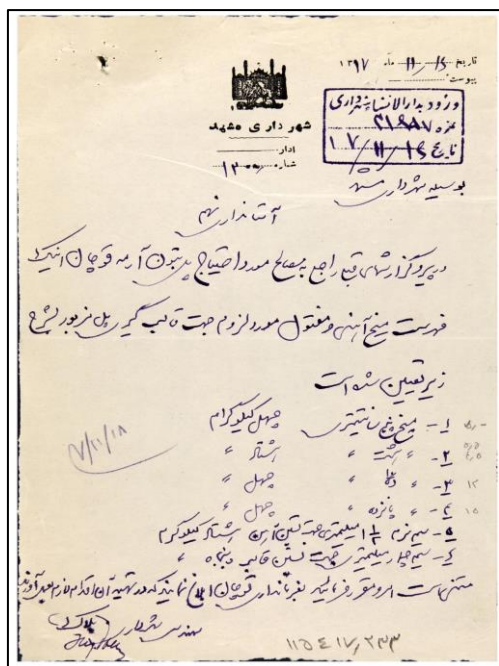 تاریخ ۱۵/۱۱ ماه ۱۳۹۷
پیوست
شهرداری مشهد
اداره
شماره ۱۳۰۰
ورود بدارالانشاء شهرداری
نمره ۲۱۹۸۷
تاریخ ۱۷/۱۱/۱۶
بوسیله شهرداری مشهد
استانداری نهم
در پیرو گزارشهای قبلی راجع به مصالح مورد احتیاج پل بتون آرمه قوچان اینک
فهرست میخ آهنی و مفتول مورد لزوم جهت قالب گیری پل مزبور بشرح
زیر تعیین شده است
۱- میخ پنج سانتیمتری چهل کیلوگرم
۲- " هشت " هشتاد "
۳- " ده " چهل "
۴- " پانزده " چهل "
۵- سیم نرم میلیمتری جهت بستن آرمه هشتاد کیلوگرم
۶- سیم چهار میلیمتری جهت بستن قالب پنجاه "
متمنی است امر و مقرر فرمائید بفرمانداری قوچان ابلاغ نمایند که در تهیه آن اقدام لازم بعمل آورند
مهندس شهرداری
۷/۱۱/۱۸
۱۱۵۴۱۷٫۲۳۳